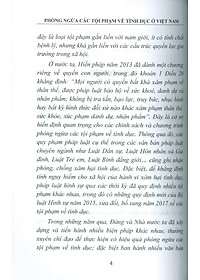 PHÒNG NGỪA CÁC TỘI PHẠM VỀ TÌNH DỤC Ở VIỆT NAM
đây là loại tội phạm gắn liền với nam giới, ít có tính chất
bệnh lý, nhưng khá gắn liền với các cấu trúc quyền lực gia
trưởng trong xã hội.
Ở nước ta, Hiến pháp năm 2013 đã dành một chương
riêng về quyền con người, trong đó khoản 1 Điều 20
khẳng định: "Mọi người có quyền bất khả xâm phạm về
thân thể, được pháp luật bảo hộ về sức khoẻ, danh dự và
nhân phẩm; không bị tra tấn, bạo lực, truy bức, nhục hình
hay bất kỳ hình thức đối xử nào khác xâm phạm thân thể,
sức khỏe, xúc phạm danh dự, nhân phẩm". Đây là cơ sở
hiến định quan trọng cho các chính sách và chương trình
phòng ngừa các tội phạm về tình dục. Thông qua đó, các
quy phạm pháp luật cụ thể trong các văn bản pháp luật
chuyên ngành như Luật Dân sự, Luật Hôn nhân và Gia
đình, Luật Trẻ em, Luật Bình đẳng giới... cũng ghi nhận,
phòng, chống xâm hại tình dục. Đặc biệt, để khẳng định
tính nguy hiểm cho xã hội của hành vi xâm hại tình dục,
pháp luật hình sự qua các thời kỳ đã quy định nhiều tội
phạm khác nhau, trong đó có những quy định mới của Bộ
luật Hình sự năm 2015, sửa đổi, bổ sung năm 2017 về các
tội phạm về tình dục.
Trong những năm qua, Đảng và Nhà nước ta đã xây
dựng và tiến hành nhiều biện pháp khác nhau, thường
xuyên chỉ đạo để thực hiện có hiệu quả phòng ngừa các
tội phạm về tình dục; đặc biệt ban hành nhiều văn bản
4